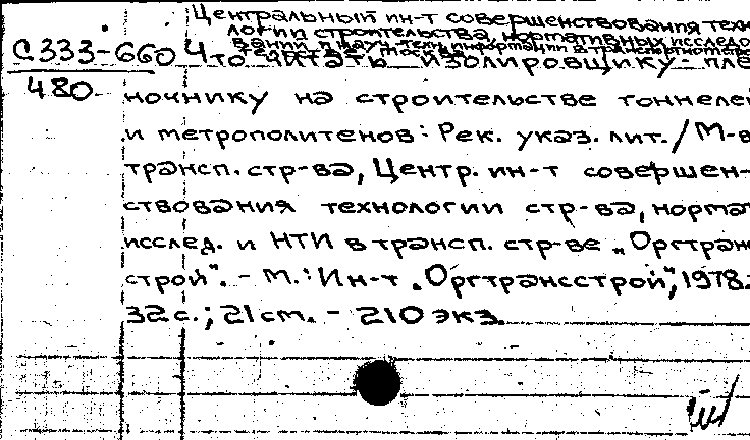 Центральный ин-т совершенствования техн
логии строительства, нормативных исследо
ваний и науч.-техн. информации в транспортном
С333-660 Что читать изолировщику-плё
480 ночнику на строительстве тоннелей
и метрополитенов: Рек. указ. лит. / М-в
трансп. стр-ва, Центр. ин-т совершен-
ствования технологии стр-ва, нормат
исслед. и НТИ в трансп. стр-ве „Оргтранс
строй". - М.: Ин-т „Оргтрансстрой", 1978.
32 с.; 21 см. - 210 экз.